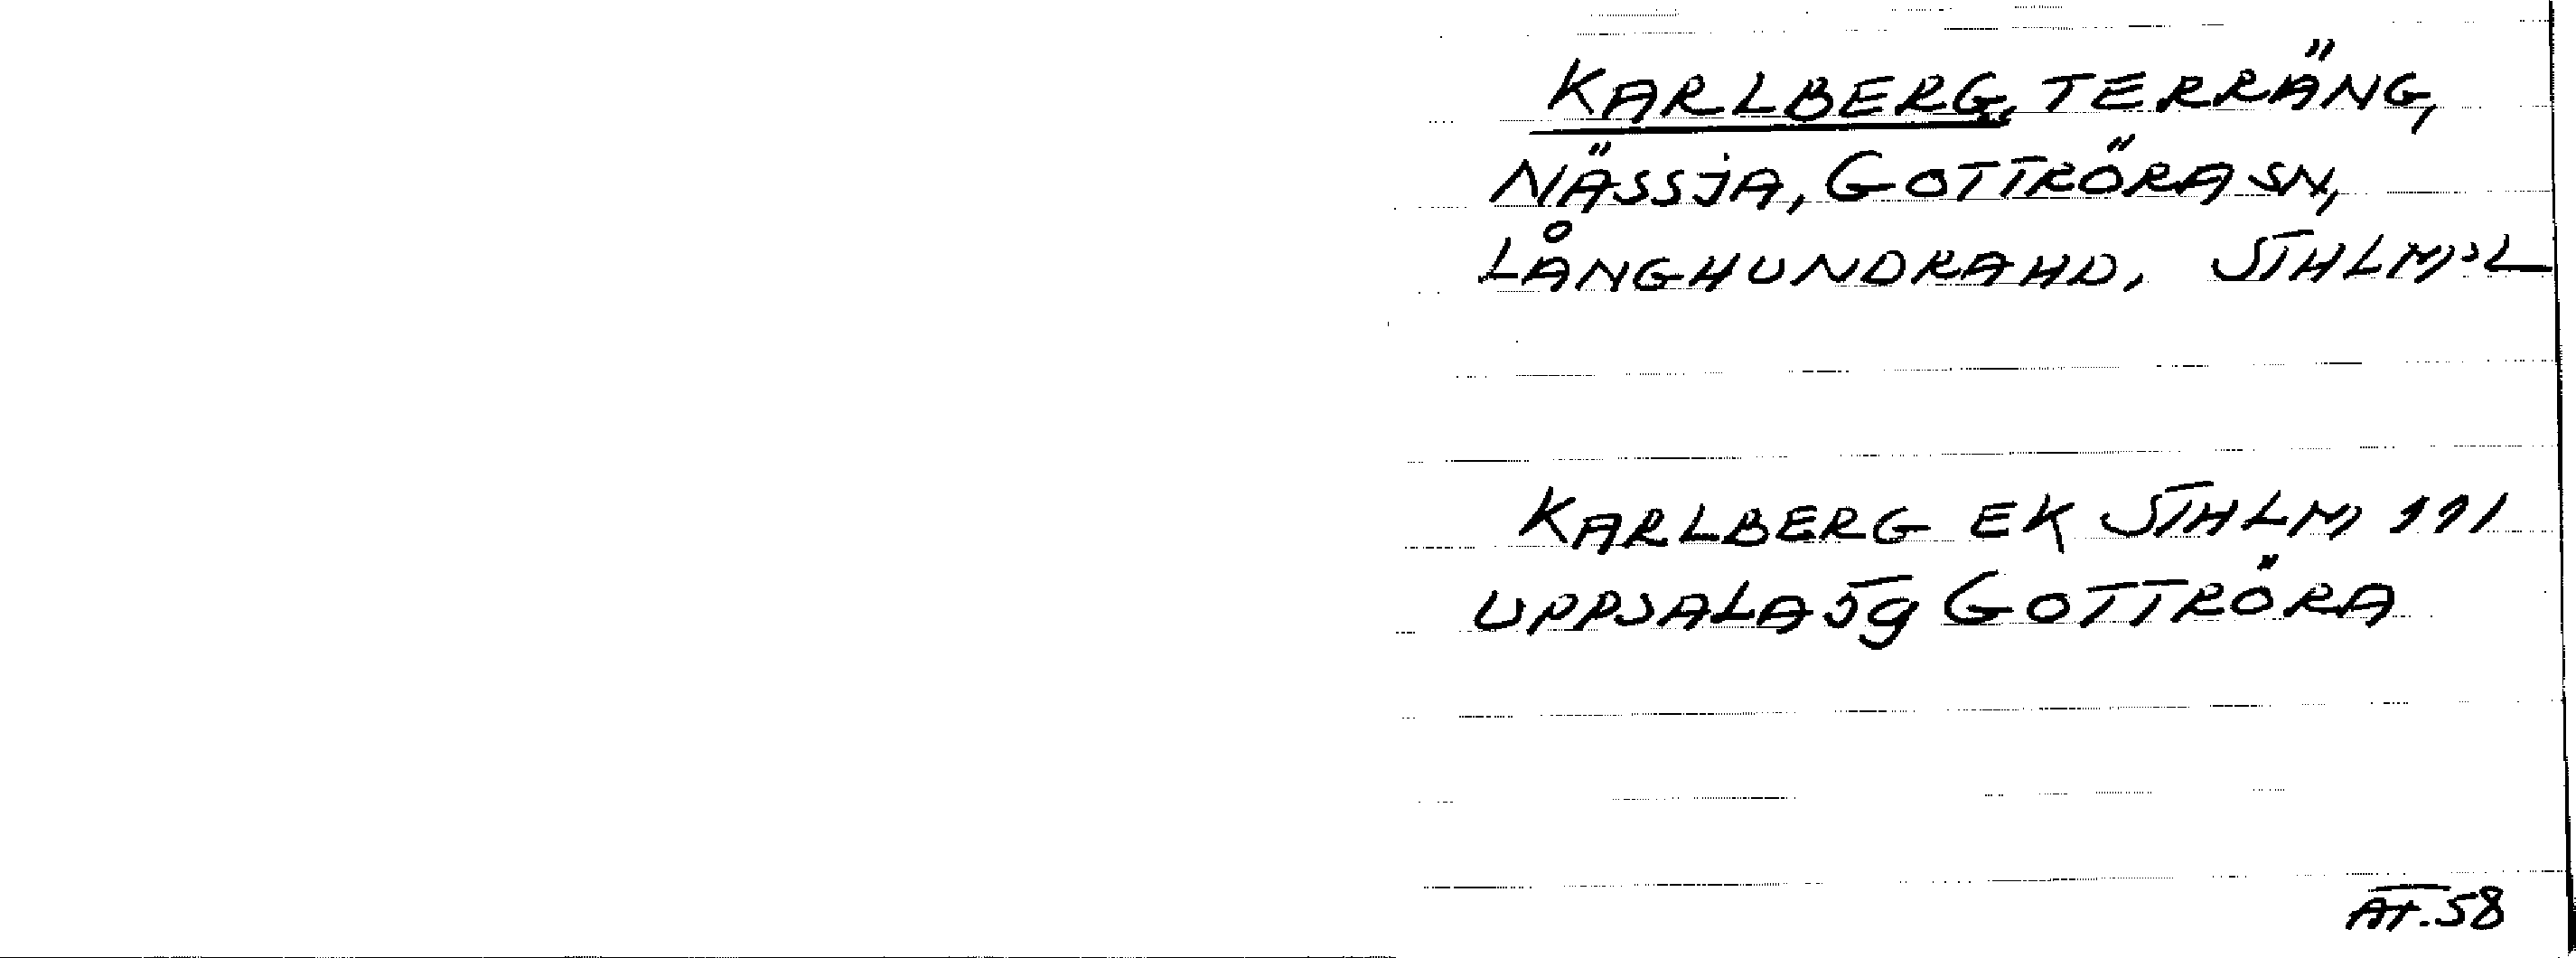 KARLBERG, TERRÄNG,
NÄSSJA, GOTTRÖRA SN,
LÅNGHUNDRA HD, STHLMS L
KARLBERG EK STHLM 111
UPPSALA 59 GOTTRÖRA
AT. 58